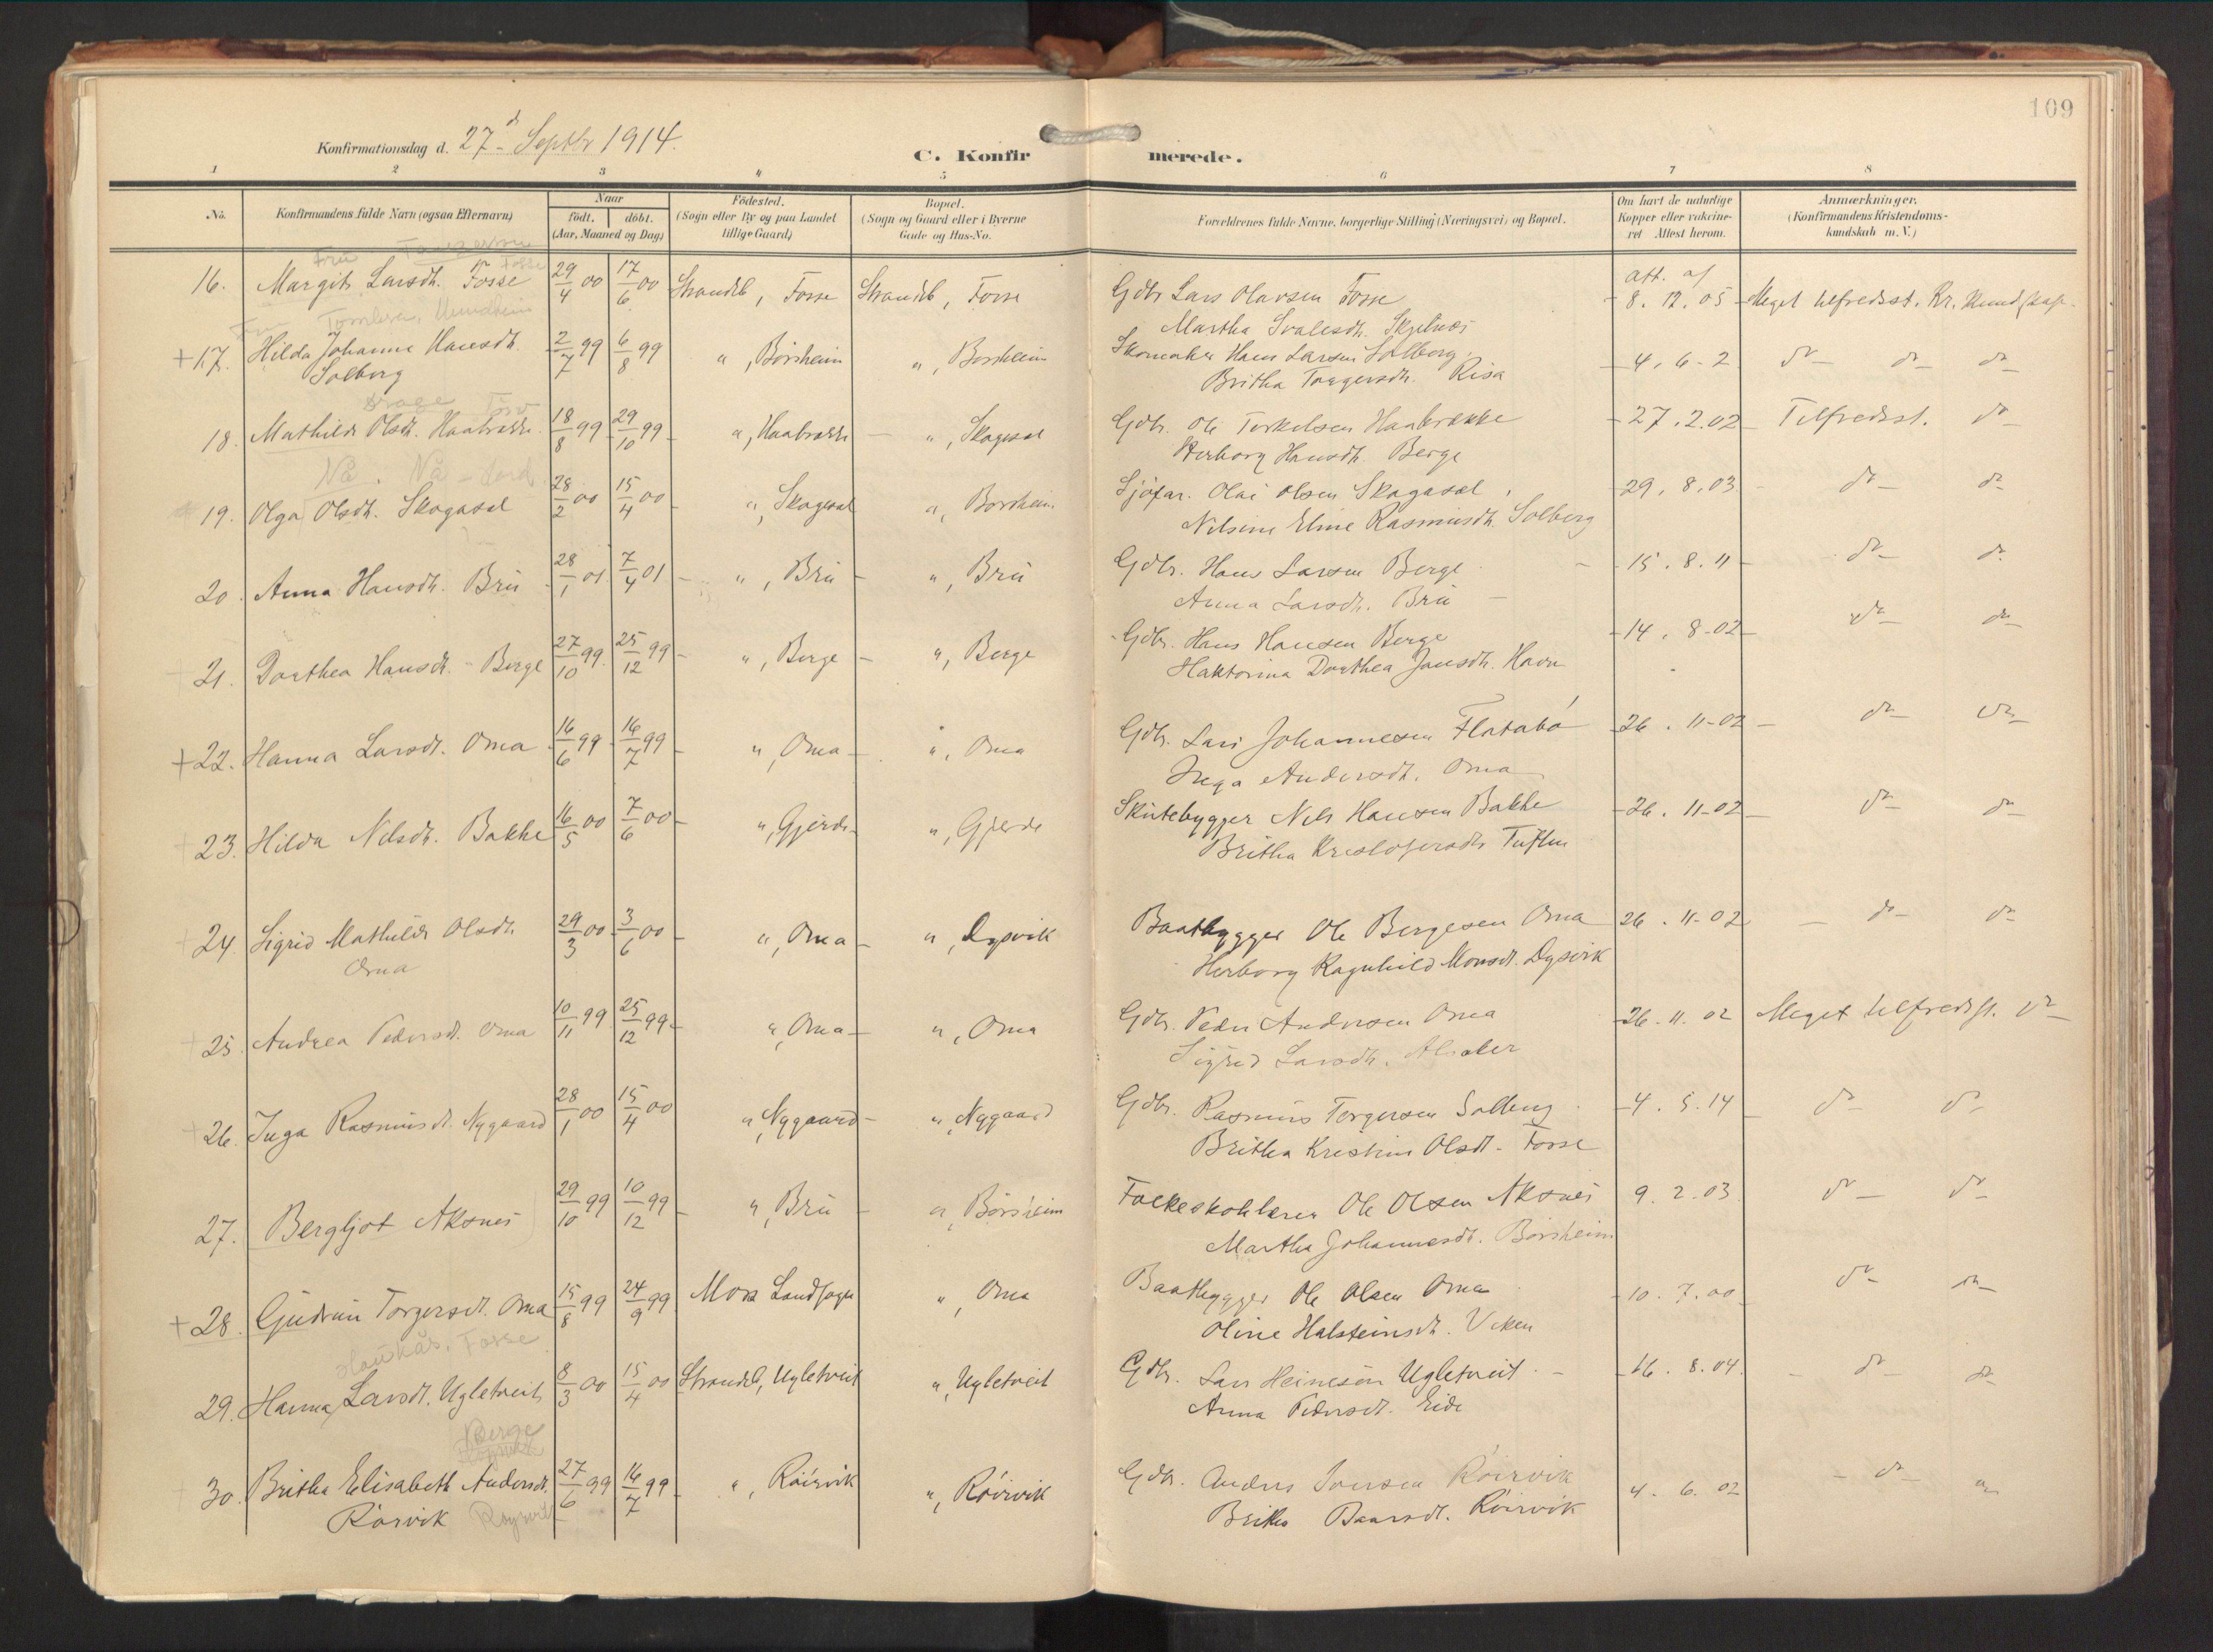 109
Konfirmationsdag d. 27d Septbr 1914.
C. Konfirmerede.
1 2 3 4 5 6 7 8
No. Konfirmandens fulde Navn (ogsaa Efternavn) Naar födt. döbt. (Aar, Maaned og Dag) Födested. (Sogn eller By og paa Landet tillige Gaard) Bopæl. (Sogn og Gaard eller i Byerne Gade og Hus-No. Forældrenes fulde Navne, borgerlige Stilling (Næringsvei) og Bopæl. Om havt de naturlige Kopper eller vakcineret Attest herom. Anmærkninger. (Konfirmandens Kristendomskundskab m. V.)
16. Margit Larsdh. Fosse 29/4 00 17/6 00 Strandeb, Fosse Strandeb, Fosse Gdbr Lars Olavsen Fosse att. af 8. 12. 05 Meget tilfredsst. Kr. Kundskap.
Martha Svalesdh. Skjelnes
+17. Hilda Johanna Hansdh. 2/7 99 6/8 99 ", Börsheim ", Börsheim Skomaker Hans Larsen Solberg 4. 6-2 do do do
Solberg Britha Torgersdh. Risa
18. Mathilde Olsdh. Haabrekke 18/8 99 29/10 99 ", Haabrekke ", Skogasel Gdbr. Ole Torkelsen Haabrekke 27. 2. 02 Tilfredsst. do
Herborg Hansdh. Berge
19. Olga Olsdh. Skogasel 28/2 00 15/4 00 ", Skogasel ", Börsheim Sjöfar. Olai Olsen Skagasel 29. 8. 03 do do
Nilsine Eline Rasmusdh. Solberg
20. Anna Hansdh. Brü 28/1 01 7/4 01 ", Brü ", Brü Gdbr. Hans Larsen Berge 15. 8. 11 do do
Anna Larsdh. Brü
21. Dorthea Hansdt. Berge 27/10 99 25/12 99 ", Berge ", Berge Gdbr. Hans Hansen Berge 14. 8-02 do do
Haktorina Dorthea Jansdh. Havn
+22. Hanna Larsdt. Oma 16/6 99 16/7 99 ", Oma ", Oma Gdbr. Lars Johannesen Flatabö 26. 11-02 do do
Inga Andersdt. Oma
23. Hilda Nilsdh. Bakke 16/5 00 7/6 00 ", Gjerde ", Gjerde Skütebygger Nils Hansen Bakke 26. 11-02 do do
Britha Kristofersdtr Tuften
24. Sigrid Mathilde Olsdh 29/3 00 3/6 00 ", Oma ", Dysvik Baatbygger Ole Bergesen Oma 26. 11-02 do do
Oma Herborg Ragnhild Monsdt. Dysvik
25. Andrea Pedersdt. Oma 10/11 99 25/12 99 ", Oma ", Oma Gdbr. Peder Andersen Oma 26. 11. 02 Meget tilfredsst. do
Sigrid Larsdh. Alsaker
26. Inga Rasmusdt. Nygaard 28/1 00 15/4 00 ", Nygaard ", Nygaard Gdbr. Rasmus Torgersen Solberg 4. 5. 14 do do
Britha Kristine Olsdt. Fosse
27. Bergljot Aksnes 29/10 99 10/12 99 ", Brü ", Börsheim Folkeskolelærer Ole Olsen Aksnes 9. 2. 03 do do
Martha Johannesdt. Börsheim
+28. Gjüdrün Torgersdt. Oma 15/8 99 24/9 99 Moss Landsogn ", Oma Baatbygger Ole Olsen Oma 10. 7. 00 do do
Oline Halsteinsdt. Viken
Haukås. Fosse
29. Hanna Larsdt. Ugletveit 8/3 00 15/4 00 Strandeb, Ugletveit ", Ugletveit Gdbr. Lars Heinesön Ugletveit 16. 8. 04. do do
Anna Pedersdt. Eide
Berge
30. Britha Elisabeth Andersdt. 27/6 99 16/7 99 ", Röirvik ", Röirvik Gdbr. Anders Iversen Röirvik 4. 6. 02 do
Rörvik Röyrvik Britha Baarsdt. Röirvik